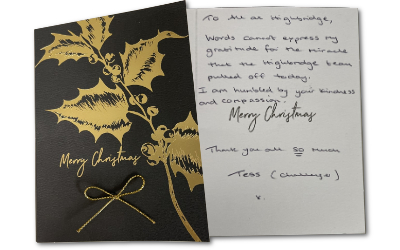 Merry Christmas
To All at Highbridge,
Words cannot express my
gratitude for the miracle
that the Highbridge team
pulled off today.
I am humbled by your kindness
and compassion.
Merry Christmas
Thank you all so much
Tess
x.